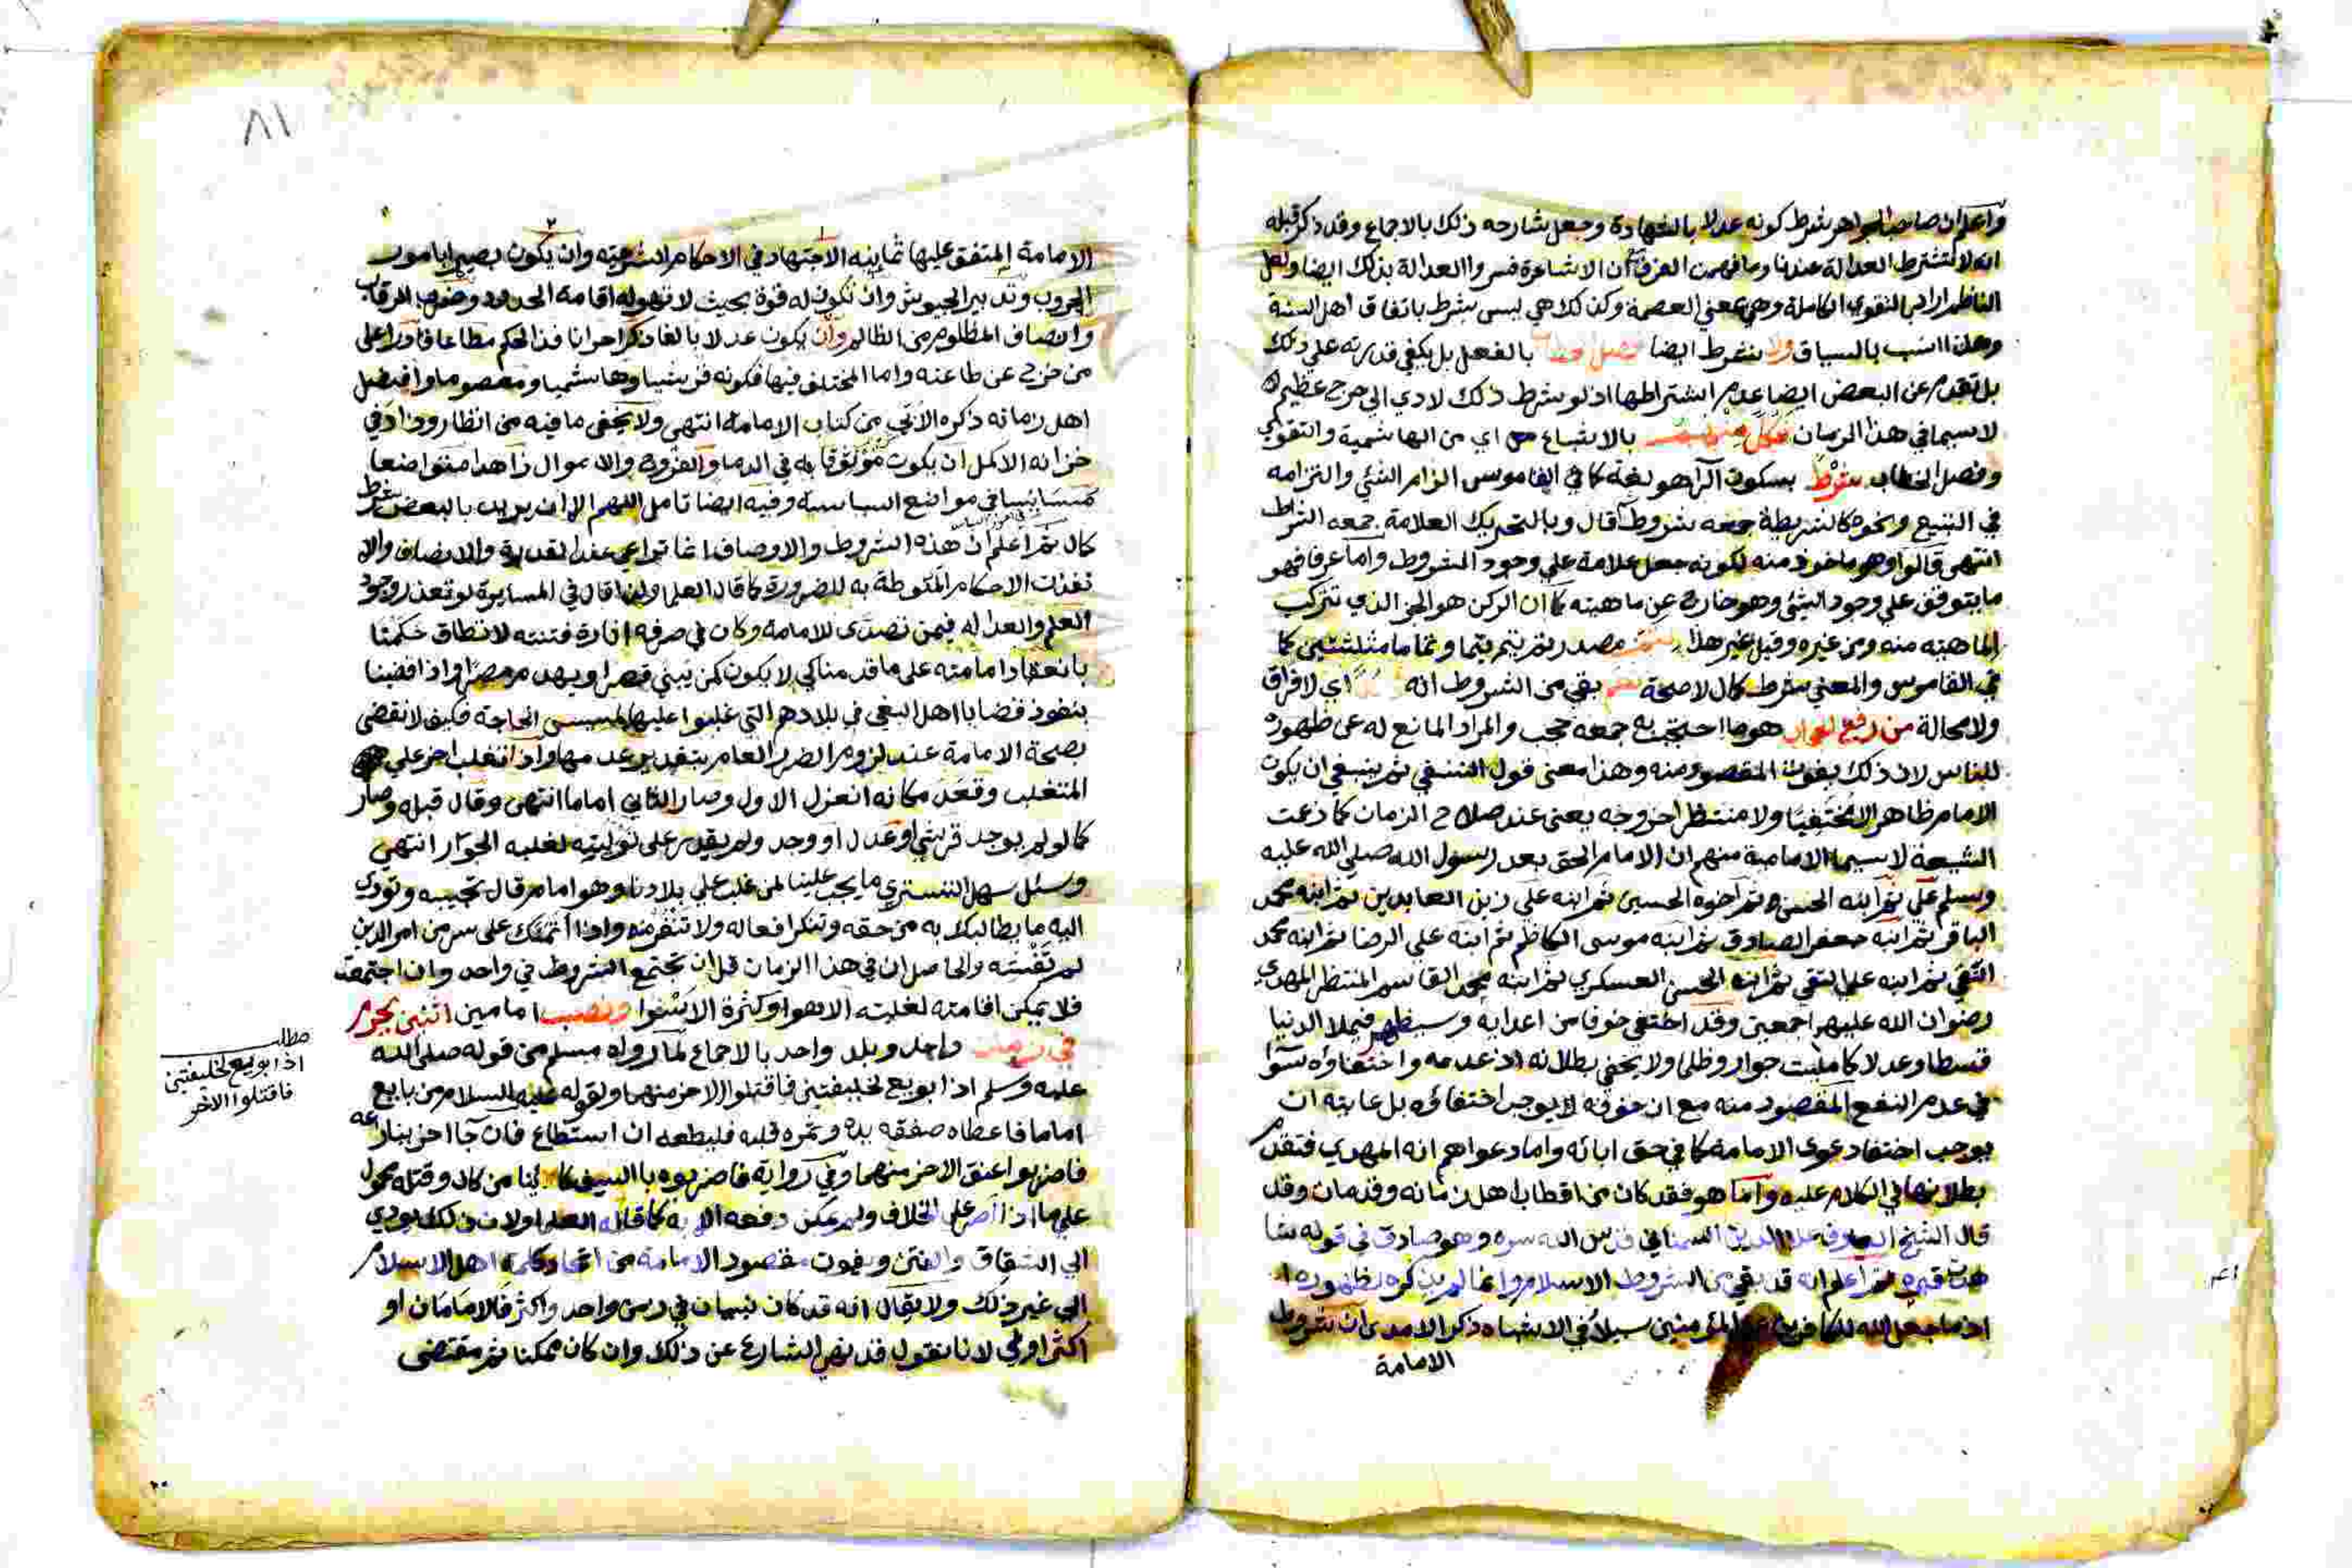 واعلم ان صاحب الجواهر شرط كونه عدلا بالشهادة وجعل شارحه ذلك بالاجماع وقد ذكر قبله
انه لا تشترط العدالة عندنا وما فهمت الفرق ان الاشاعرة فسروا العدالة بذلك ايضا ولعل
الناظم اراد بالتقوى الكاملة وهي بمعني العصمة وكذلك هي ليس بشرط باتفاق اهل السنة
وهذا انسب بالسياق ولا يشترط ايضا فصل خطاب بالفعل بل يكفي قدرته علي ذلك
بل تقدم عن البعض ايضا عدم اشتراطها اذ لو شرط ذلك لادي الي حرج عظيم
لا سيما في هذا الزمان بالاشباع اي من الهاشمية والتقوي
وفصل الخطاب شرط بسكون الرا هو لغة كما في القاموس الزام الشئي والتزامه
في البيع ونحوه كالشريطة جمعه شروط قال وبالتحريك العلامة جمعه اشراط
انتهي قالوا وهو ماخوذ منه لكونه جعل علامة علي وجود المشروط واما عرفا فهو
ما يتوقف علي وجود الشئي وهو خارج عن ماهيته كما ان الركن هو الجز الذي تتركب
الماهية منه ومن غيره وقيل غير هذا مصدر تم يتم تما وتماما مثلثتين كما
في القاموس والمعني شرط كمال لا صحة بقي من الشروط انه اي لا فراق
ولا محالة من رفع الحجاب هو ما احتجب به جمعه حجب والمراد المانع له عن ظهوره
للناس لان ذلك يفوت المقصود منه وهذا معنى قول النسفي ثم ينبغي ان يكون
الامام ظاهرا لا مختفيا ولا منتظرا خروجه يعنى عند صلاح الزمان كما زعمت
الشيعة لا سيما الامامية منهم ان الامام الحق بعد رسول الله صلي الله عليه
وسلم علي ثم ابنه الحسن ثم اخوه الحسين ثم ابنه علي زين العابدين ثم ابنه محمد
الباقر ثم ابنه جعفر الصادق ثم ابنه موسى الكاظم ثم ابنه علي الرضا ثم ابنه محمد
التقي ثم ابنه علي النقي ثم ابنه الحسن العسكري ثم ابنه محمد القاسم المنتظر المهدي
رضوان الله عليهم اجمعين وقد اختفي خوفا من اعدايه وسيظهر فيملا الدنيا
قسطا وعدلا كما مليت جورا وظلما ولا يخفي بطلانه اذ عدمه واختفاؤه سوا
في عدم النفع المقصود منه مع ان خوفه لا يوجب اختفاؤه بل غايته ان
يوجب اختفا دعوى الامامة كما في حق ابائه واما دعواهم انه المهدي فتقدم
بطلانها في الكلام عليه واما هو فقد كان من اقطاب اهل زمانه وقد مات وقد
قال الشيخ العارف علا الدين السمناني قدس الله سره وهو صادق في قوله
قبره ثم اعلم انه قد بقي من الشروط الاسلام وانما لم يذكره لظهوره
اذ ما جعل الله للكافرين علي المؤمنين سبيلا في الاشباه ذكر الامدي ان شروط
الامامة
٨١
الامامة المتفق عليها ثمانية الاجتهاد في الاحكام الشرعية وان يكون بصيرا بامور
الحروب وتدبير الجيوش وان تكون له قوة بحيث لا تهوله اقامة الحدود وضرب الرقاب
وانصاف المظلوم من الظالم وان يكون عدلا بالغا ذكرا حرا نافذ الحكم مطاعا قادرا على
من خرج عن طاعته واما المختلف فيها فكونه قرشيا وهاشميا ومعصوما وافضل
اهل زمانه ذكره الاتي من كتاب الامامة انتهى ولا يخفى ما فيه من انظار وزاد في
خزانه الاكمل ان يكون موثوقا به في الدما والفروج والاموال زاهدا متواضعا
في مواضع السياسة وفيه ايضا تامل اللهم الا ان يريد بالبعض شرط
كمال ثم اعلم ان هذه الشروط والاوصاف انما تراعي عند القدرة والانصاف والا
نفذت الاحكام المنوطة به للضرورة كما قال العلما ولذا قال في المسايرة لو تعذر وجود
العلم والعدالة فيمن تصدى للامامة وكان في صرفه اثارة فتنة لا تطاق حكمنا
بانعقاد امامته على ما قدمنا كي لا يكون كمن يبني قصرا ويهدم مصرا واذا قضينا
بنفوذ قضايا اهل البغي في بلادهم التي غلبوا عليها لمسيس الحاجة فكيف لا نقضي
بصحة الامامة عند لزوم الضرر العام بتقدير عدمها واذا تغلب اخر علي
المتغلب وقعد مكانه انعزل الاول وصار الثاني اماما انتهى وقال قبله وصار
كما لو لم يوجد قرشي او عدل او وجد ولم يقدر على توليته لغلبه الجوار انتهى
وسئل سهل التستري ما يجب علينا لمن غلب علي بلادنا وهو امام قال تجيبه وتودي
اليه ما يطالبك به من حقه وتنكر افعاله ولا تنفر منه واذا ائتمنك على سر من امر الدين
لم تفشه والحاصل ان في هذا الزمان قل ان تجتمع الشروط في واحد وان اجتمعت
فلا يمكن اقامته لغلبة الاهوا وكثرة الاسوا ونصب امامين اثنين يحرم
في زمان واحد وبلد واحد بالاجماع لما رواه مسلم من قوله صلى الله
عليه وسلم اذا بويع لخليفتين فاقتلوا الاخر منهما ولقوله عليه السلام من بايع
اماما فاعطاه صفقه يده وثمرة قلبه فليطعه ان استطاع فان جا اخر ينازعه
فاضربوا عنق الاخر منهما وفي رواية فاضربوه بالسيف كائنا من كان وقتله محمول
علي ما اذا اصر على الخلاف ولم يمكن دفعه الا به كما قاله العلما ولان ذلك يودي
الي الشقاق والفتن ويفوت مقصود الامامة من اتحاد كلمة اهل الاسلام
الي غير ذلك ولا يقال انه قد كان نبيان في زمن واحد واكثر فالامامان او
اكثر اولي لانا نقول قد نهى الشارع عن ذلك وان كان ممكنا ثم مقتضى
مطلب
اذا بويع لخليفتين
فاقتلوا الاخر